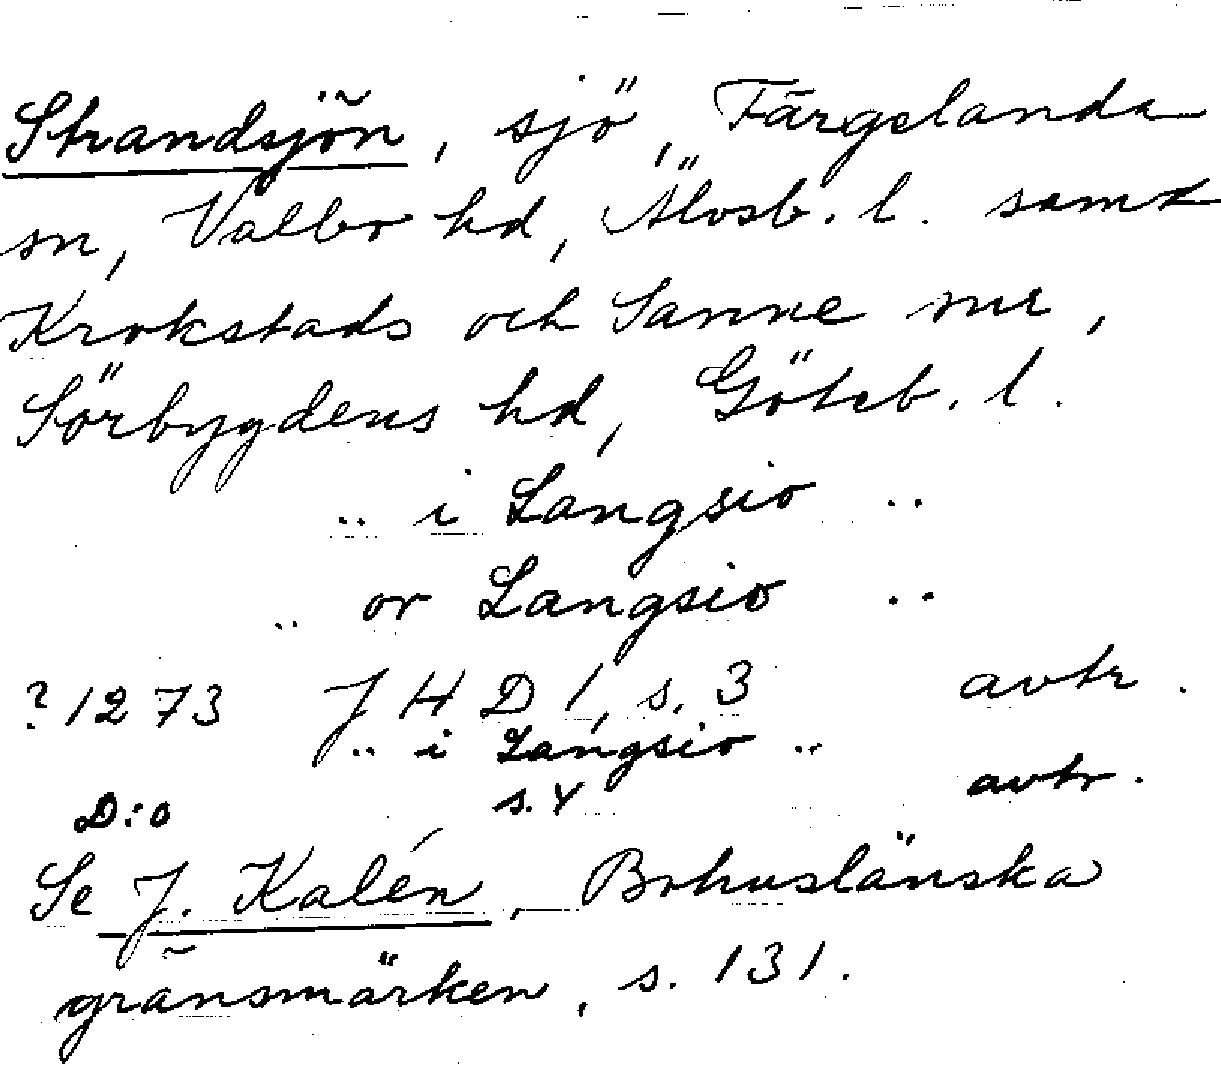 Strandsjön, sjö, Färgelanda
sn, Valbo hd, Älvsb. l. samt
Krokstads och Sanne snr,
Sörbygdens hd, Göteb. l.
.. i Langsio ..
.. or Langsio ..
? 1273 JHD 1, s. 3 avtr.
.. i Langsio ..
D:o s. 4 avtr.
Se J. Kalén, Bohuslänska
gränsmärken, s. 131.